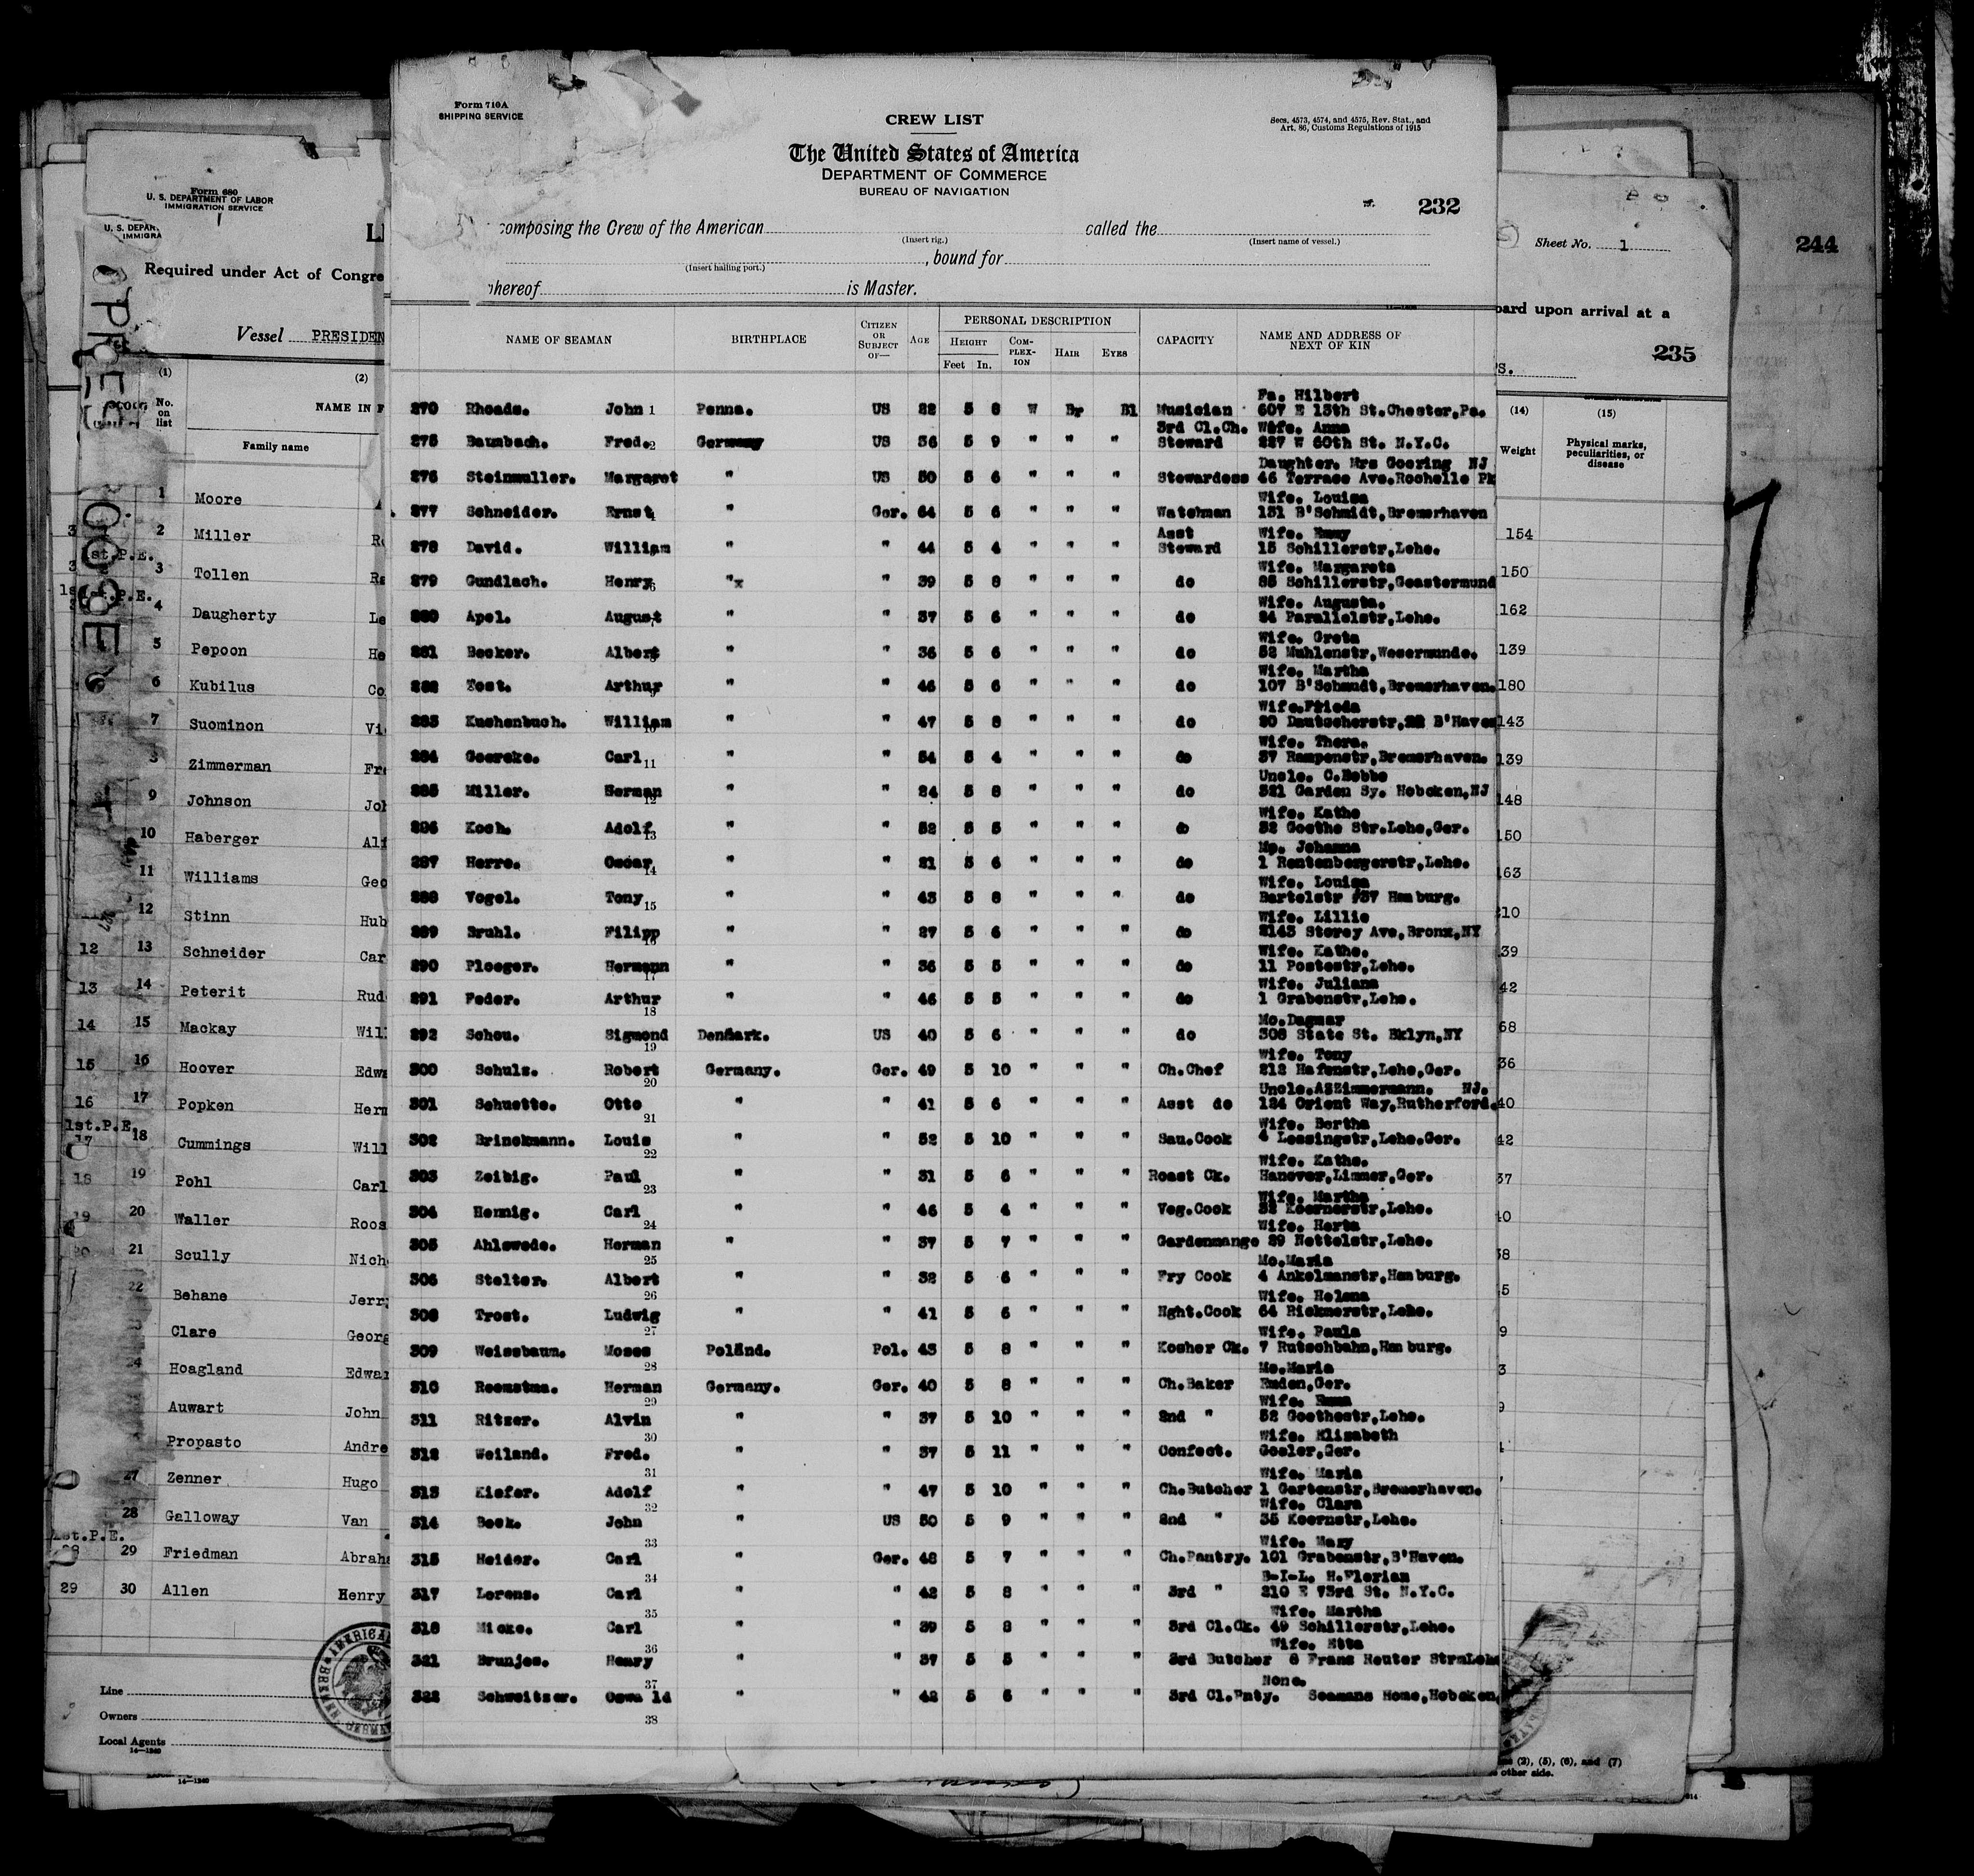 Form 710A
SHIPPING SERVICE
CREW LIST
Secs. 4573, 4574, and 4575, Rev. Stat., and
Art. 86, Customs Regulations of 1915
The United States of America
DEPARTMENT OF COMMERCE
BUREAU OF NAVIGATION
232
composing the Crew of the American called the
(Insert rig.) (Insert name of vessel.)
, bound for
(Insert hailing port.)
hereof is Master.
NAME OF SEAMAN BIRTHPLACE CITIZEN OR SUBJECT OF— AGE PERSONAL DESCRIPTION CAPACITY NAME AND ADDRESS OF NEXT OF KIN
HEIGHT COMPLEXION HAIR EYES
Feet In.
Fa. Hilbert
270 Rhoads. John 1 Penna. US 22 5 8 W Br Bl Musician 607 E 13th St.Chester,Pa.
3rd Cl.Ch. Wife. Anna
275 Baumbach. Fred. 2 Germany US 36 5 9 " " " Steward 227 W 60th St. N.Y.C.
Daughter. Mrs Goering NJ
276 Steinmuller. Margaret " US 50 5 6 " " " Stewardess 46 Terrace Ave.Rochelle Pk
Wife. Louisa
277 Schneider. Ernst 4 " Ger. 64 5 6 " " " Watchman 131 B'Schmidt,Bremerhaven
Asst Wife. Emmy
278 David. William " " 44 5 4 " " " Steward 15 Schillerstr,Lehe.
Wife. Margareta
279 Gundlach. Henry 6 "x " 39 5 8 " " " do 85 Schillerstr,Geestermund
Wife. Augusta.
280 Apel. August " " 37 5 6 " " " do 24 Parallelstr,Lehe.
Wife. Greta
281 Becker. Albert " " 36 5 6 " " " do 52 Muhlenstr,Wesermunde.
Wife. Martha
282 Tost. Arthur " " 46 5 6 " " " do 107 B'Schmudt,Bremerhaven.
Wife.Frieda
283 Kuchenbuch. William 10 " " 47 5 8 " " " do 20 Deutscherstr, B'Haven
Wife. Thera.
284 Goercke. Carl 11 " " 54 5 4 " " " do 37 Rampenstr,Bremerhaven.
Uncle. C.Bobbe
285 Miller. Herman 12 " " 24 5 8 " " " do 321 Garden Sy. Hoboken,NJ
Wife. Kathe
286 Koch. Adolf 13 " " 52 5 5 " " " do 32 Goethe Str.Lehe,Ger.
Mo. Johanna
287 Herre. Oscar 14 " " 21 5 6 " " " do 1 Rentenbergerstr,Lehe.
Wife. Louisa
288 Vogel. Tony 15 " " 43 5 8 " " " do Bartelstr #37 Hamburg.
Wife. Lillie
289 Bruhl. Filipp 16 " " 27 5 6 " " " do 2143 Storey Ave,Bronx,NY
Wife. Kathe.
290 Ploeger. Hermann 17 " " 36 5 5 " " " do 11 Postestr,Lehe.
Wife. Juliana
291 Feder. Arthur 18 " " 46 5 5 " " " do 1 Grabenstr,Lehe.
Mo.Dagmar
292 Schou. Sigmond 19 Denmark. US 40 5 6 " " " do 308 State St. Bklyn,NY
Wife. Tony
300 Schulz. Robert 20 Germany. Ger. 49 5 10 " " " Ch.Chef 212 Hafenstr,Lehe,Ger.
Uncle.AZZimmermann. NJ.
301 Schuette. Otto 21 " " 41 5 6 " " " Asst do 124 Orient Way,Rutherford.
Wife. Bertha
302 Brinckmann. Louis 22 " " 52 5 10 " " " Sau.Cook 4 Lessingstr,Lehe.Ger.
Wife. Kathe.
303 Zeibig. Paul 23 " " 31 5 6 " " " Roast Ck. Hanover,Limmer,Ger.
Wife. Martha
304 Hennig. Carl 24 " " 46 5 4 " " " Veg.Cook 32 Koernerstr,Lehe.
Wife. Herta
305 Ahlswede. Herman 25 " " 37 5 7 " " " Gardenmange 29 Hettelstr,Lehe.
Mo.Maria
306 Stelter. Albert 26 " " 32 5 6 " " " Fry Cook 4 Ankelmanstr,Hamburg.
Wife. Helena
308 Trost. Ludwig 27 " " 41 5 6 " " " Nght.Cook 64 Rickmerstr,Lehe.
Wife. Paula
309 Weissbaum. Moses 28 Poland. Pol. 43 5 8 " " " Kosher Ck. 7 Rutschbahn,Hamburg.
Mo.Maria
310 Reemstma. Herman 29 Germany. Ger. 40 5 8 " " " Ch.Baker Emden,Ger.
Wife. Emma
311 Ritzer. Alvin 30 " " 37 5 10 " " " 2nd " 52 Goethestr,Lehe.
Wife. Elisabeth
312 Weiland. Fred. 31 " " 37 5 11 " " " Confect. Goslar,Ger.
Wife. Maria
313 Kiefer. Adolf 32 " " 47 5 10 " " " Ch.Butcher 1 Gartenstr,Bremerhaven.
Wife. Clara
314 Beck. John 33 " US 50 5 9 " " " 2nd " 35 Koernstr,Lehe.
Wife. Mary
315 Heider. Carl 34 " Ger. 48 5 7 " " " Ch.Pantry. 101 Grabenstr,B'Haven.
B-I-L. H.Florian
317 Lorenz. Carl 35 " " 42 5 8 " " " 3rd " 210 E 73rd St. N.Y.C.
Wife. Martha
318 Micke. Carl 36 " " 39 5 8 " " " 3rd Cl.Ck. 49 Schillerstr,Lehe.
Wife. Etta
321 Brunjes. Henry 37 " " 37 5 5 " " " 3rd Butcher 8 Franz Reuter Str
None.
322 Schweitzer. Oswald 38 " " 42 5 6 " " " 3rd Cl.Pnty. Seamans Home,Hoboken
Form 680
U. S. DEPARTMENT OF LABOR
IMMIGRATION SERVICE
U. S. DEPAR
IMMIGRA
LI
Required under Act of Congre
Vessel PRESIDEN
PRES. ROOSEV
(1) (2)
No. on list NAME IN F
Family name
1 Moore
2 Miller
1st.P.E.
3 Tollen
4 Daugherty Le
5 Pepoon He
6 Kubilus Co
7 Suominon Vi
8 Zimmerman Fr
9 Johnson Joh
10 Haberger Alf
11 Williams Geo
12 Stinn Hub
12 13 Schneider Car
13 14 Peterit Rud
14 15 Mackay Wil
15 16 Hoover Edwa
16 17 Popken Herm
1st.P.E.
17 18 Cummings Will
18 19 Pohl Carl
19 20 Waller Roos
20 21 Scully Nich
22 Behane Jerr
Clare Georg
24 Hoagland Edwar
Auwart John
Propasto Andre
27 Zenner Hugo
28 Galloway Van
1st.P.E.
28 29 Friedman Abraha
29 30 Allen Henry
Line
Owners
Local Agents
14—1240
14—1240
AMERICA
Sheet No. 1
244
oard upon arrival at a
235
(14) (15)
Weight Physical marks, peculiarities, or disease
154
150
162
139
180
143
139
148
150
163
210
7
(2), (5), (6), and (7)
other side.